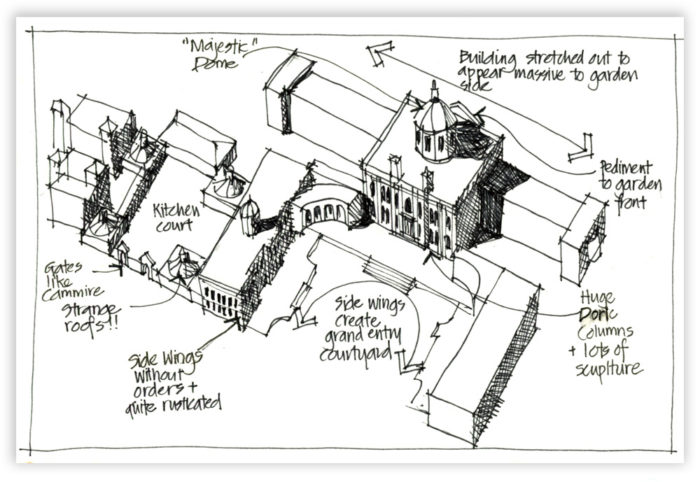 "Majestic"
Dome
Building stretched out to
appear massive to garden
side
Pediment
to garden
front
Kitchen
court
Gates
like
Cammire
strange
roofs!!
Side wings
create
grand entry
courtyard
Huge
Doric
Columns
+ lots of
scuplture
Side Wings
without
orders +
quite rusticated